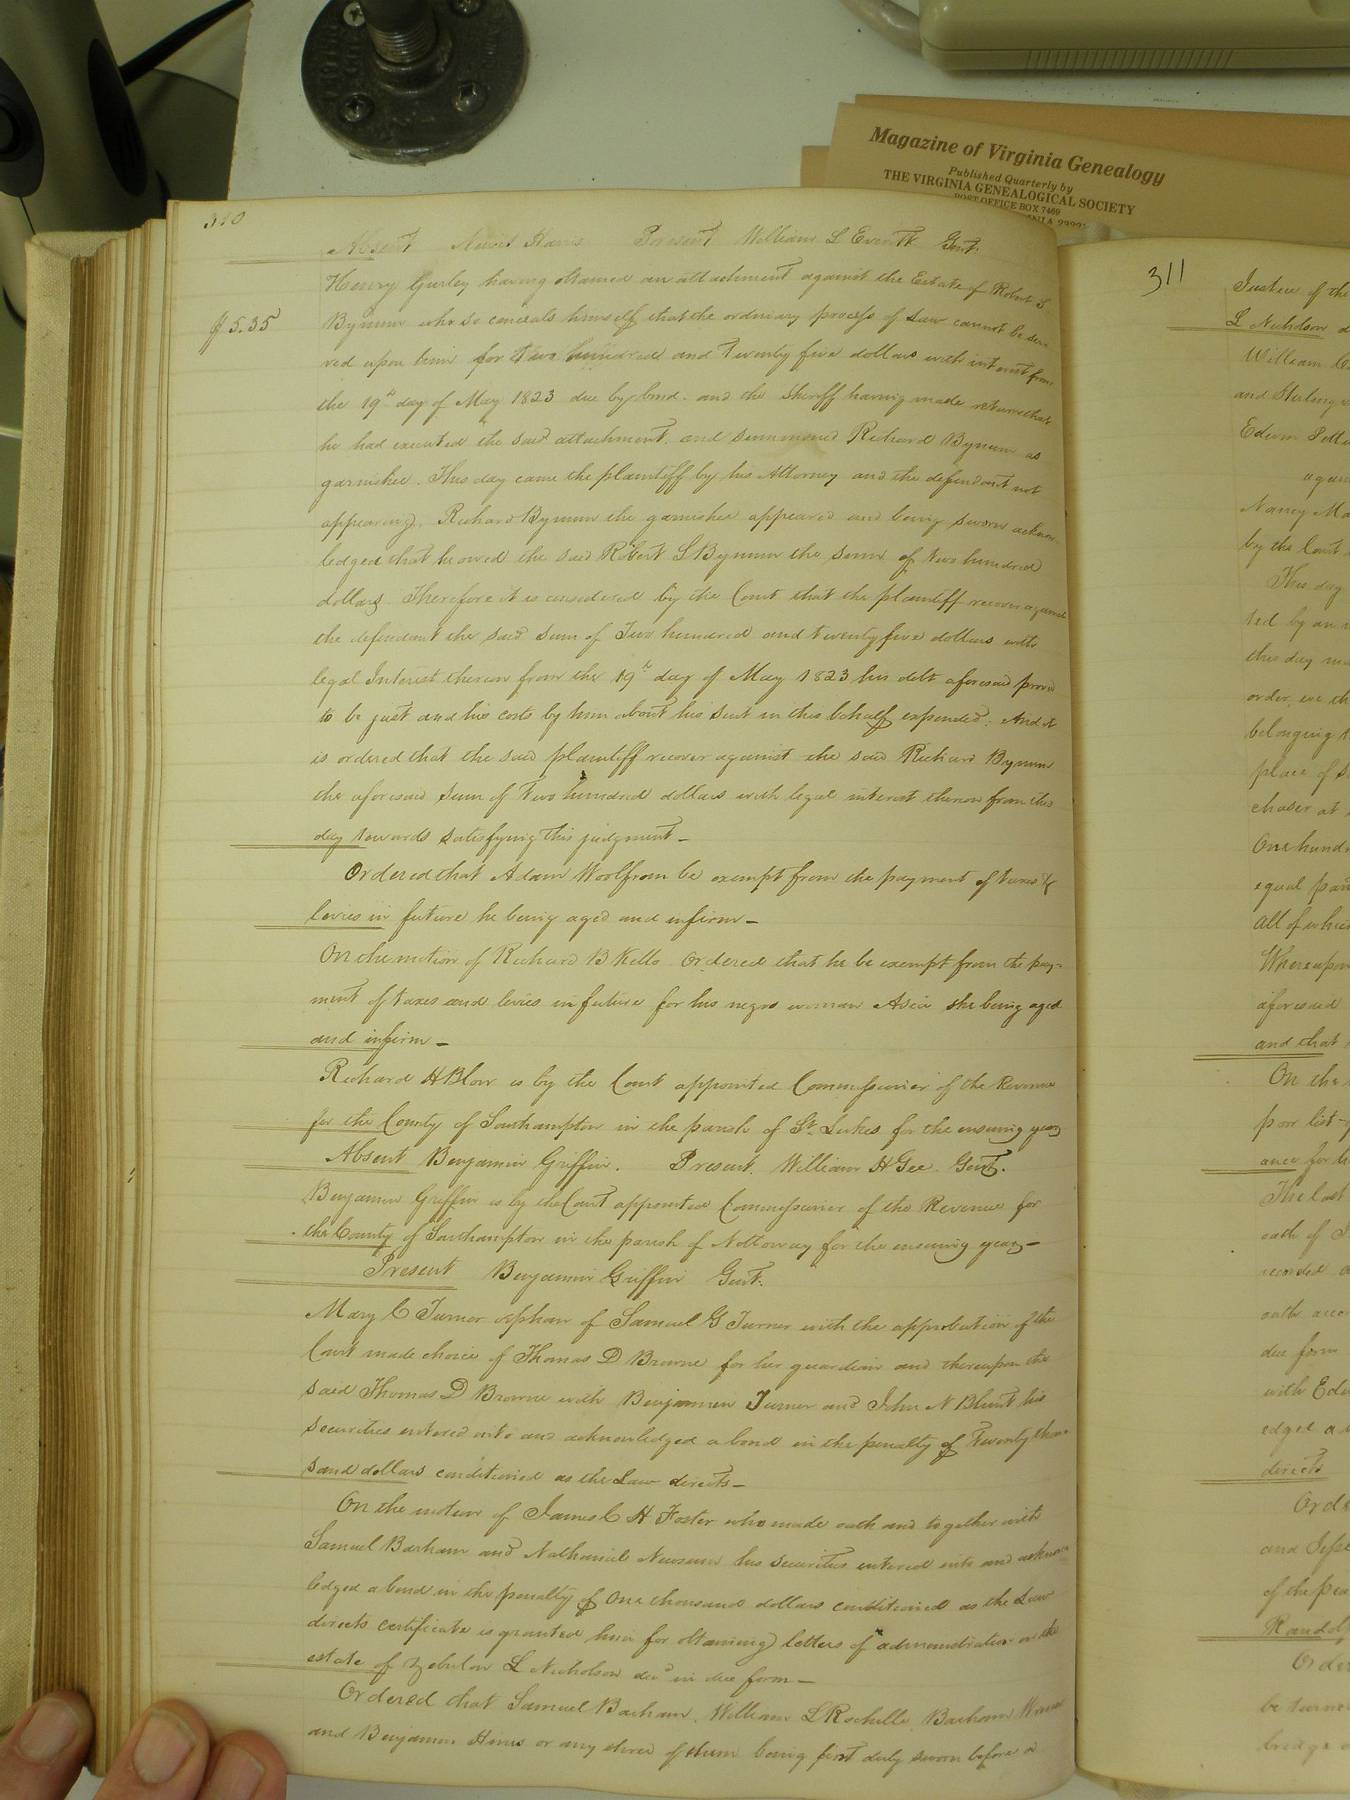 Magazine of Virginia Genealogy
Published Quarterly by
THE VIRGINIA GENEALOGICAL SOCIETY
POST OFFICE BOX 7469
310
Absent Newit Harris Present William L Everitt Gent.
Henry Gurley having obtained an attachment against the Estate of Robert S
$ 5.35
Bynum who so conceals himself that the ordinary process of Law cannot be ser
ved upon him for two hundred and twenty five dollars with interest from
the 19th day of May 1823 due by bond. and the Sheriff having made return that
he had executed the said attachment, and summoned Richard Bynum as
garnishee. This day came the plaintiff by his Attorney and the defendant not
appearing, Richard Bynum the garnishee appeared and being sworn acknow
ledged that he owed the said Robert S Bynum the sum of two hundred
dollars. Therefore it is considered by the Court that the plaintiff recover against
the defendant the said sum of Two hundred and twenty five dollars with
legal Interest thereon from the 19th day of May 1823 his debt aforesaid proved
to be just and his costs by him about his suit in this behalf expended; And it
is ordered that the said plaintiff recover against the said Richard Bynum
the aforesaid sum of two hundred dollars with legal interest thereon from this
day towards satisfying this judgment —
Ordered that Adam Woolfrom be exempt from the payment of taxes &
levies in future he being aged and infirm —
On the motion of Richard B Kello Ordered that he be exempt from the pay-
ment of taxes and levies in future for his negro woman Asia she being aged
and infirm —
Richard H Blow is by the Court appointed Commissioner of the Revenue
for the County of Southampton in the parish of St. Lukes for the ensuing year
Absent Benjamin Griffin. Present. William H Gee Gent.
Benjamin Griffin is by the Court appointed Commissioner of the Revenue for
the County of Southampton in the parish of Nottoway for the ensuing year —
Present Benjamin Griffin Gent.
Mary C Turner orphan of Samuel G Turner with the approbation of the
Court made choice of Thomas D Browne for her guardian and thereupon the
said Thomas D Browne with Benjamin Turner and John N Blunt his
securities entered into and acknowledged a bond in the penalty of Twenty thou
sand dollars conditioned as the Law directs —
On the motion of James C H Foster who made oath and together with
Samuel Barham and Nathaniel Newsum his securities entered into and acknow
ledged a bond in the penalty of One thousand dollars conditioned as the Law
directs certificate is granted him for obtaining letters of administration on the
estate of Zebulon L Nicholson decd in due form —
Ordered that Samuel Barham, William L Rochelle, Barham
and Benjamin Hines or any three of them being first duly sworn before a
311
Justice of the
L Nicholson
William
and Sterling
Edwin
again
Nancy
by the Court
This day
ted by an
this day
order, we th
belonging
place of
chaser at
One hund
equal par
all of whic
Whereupon
aforesaid
and that
On the
poor list
ance for
The last
oath of
recorded
oath acco
due form
with Edw
edged a
directs
Orde
and
of the pea
Randolp
Order
be